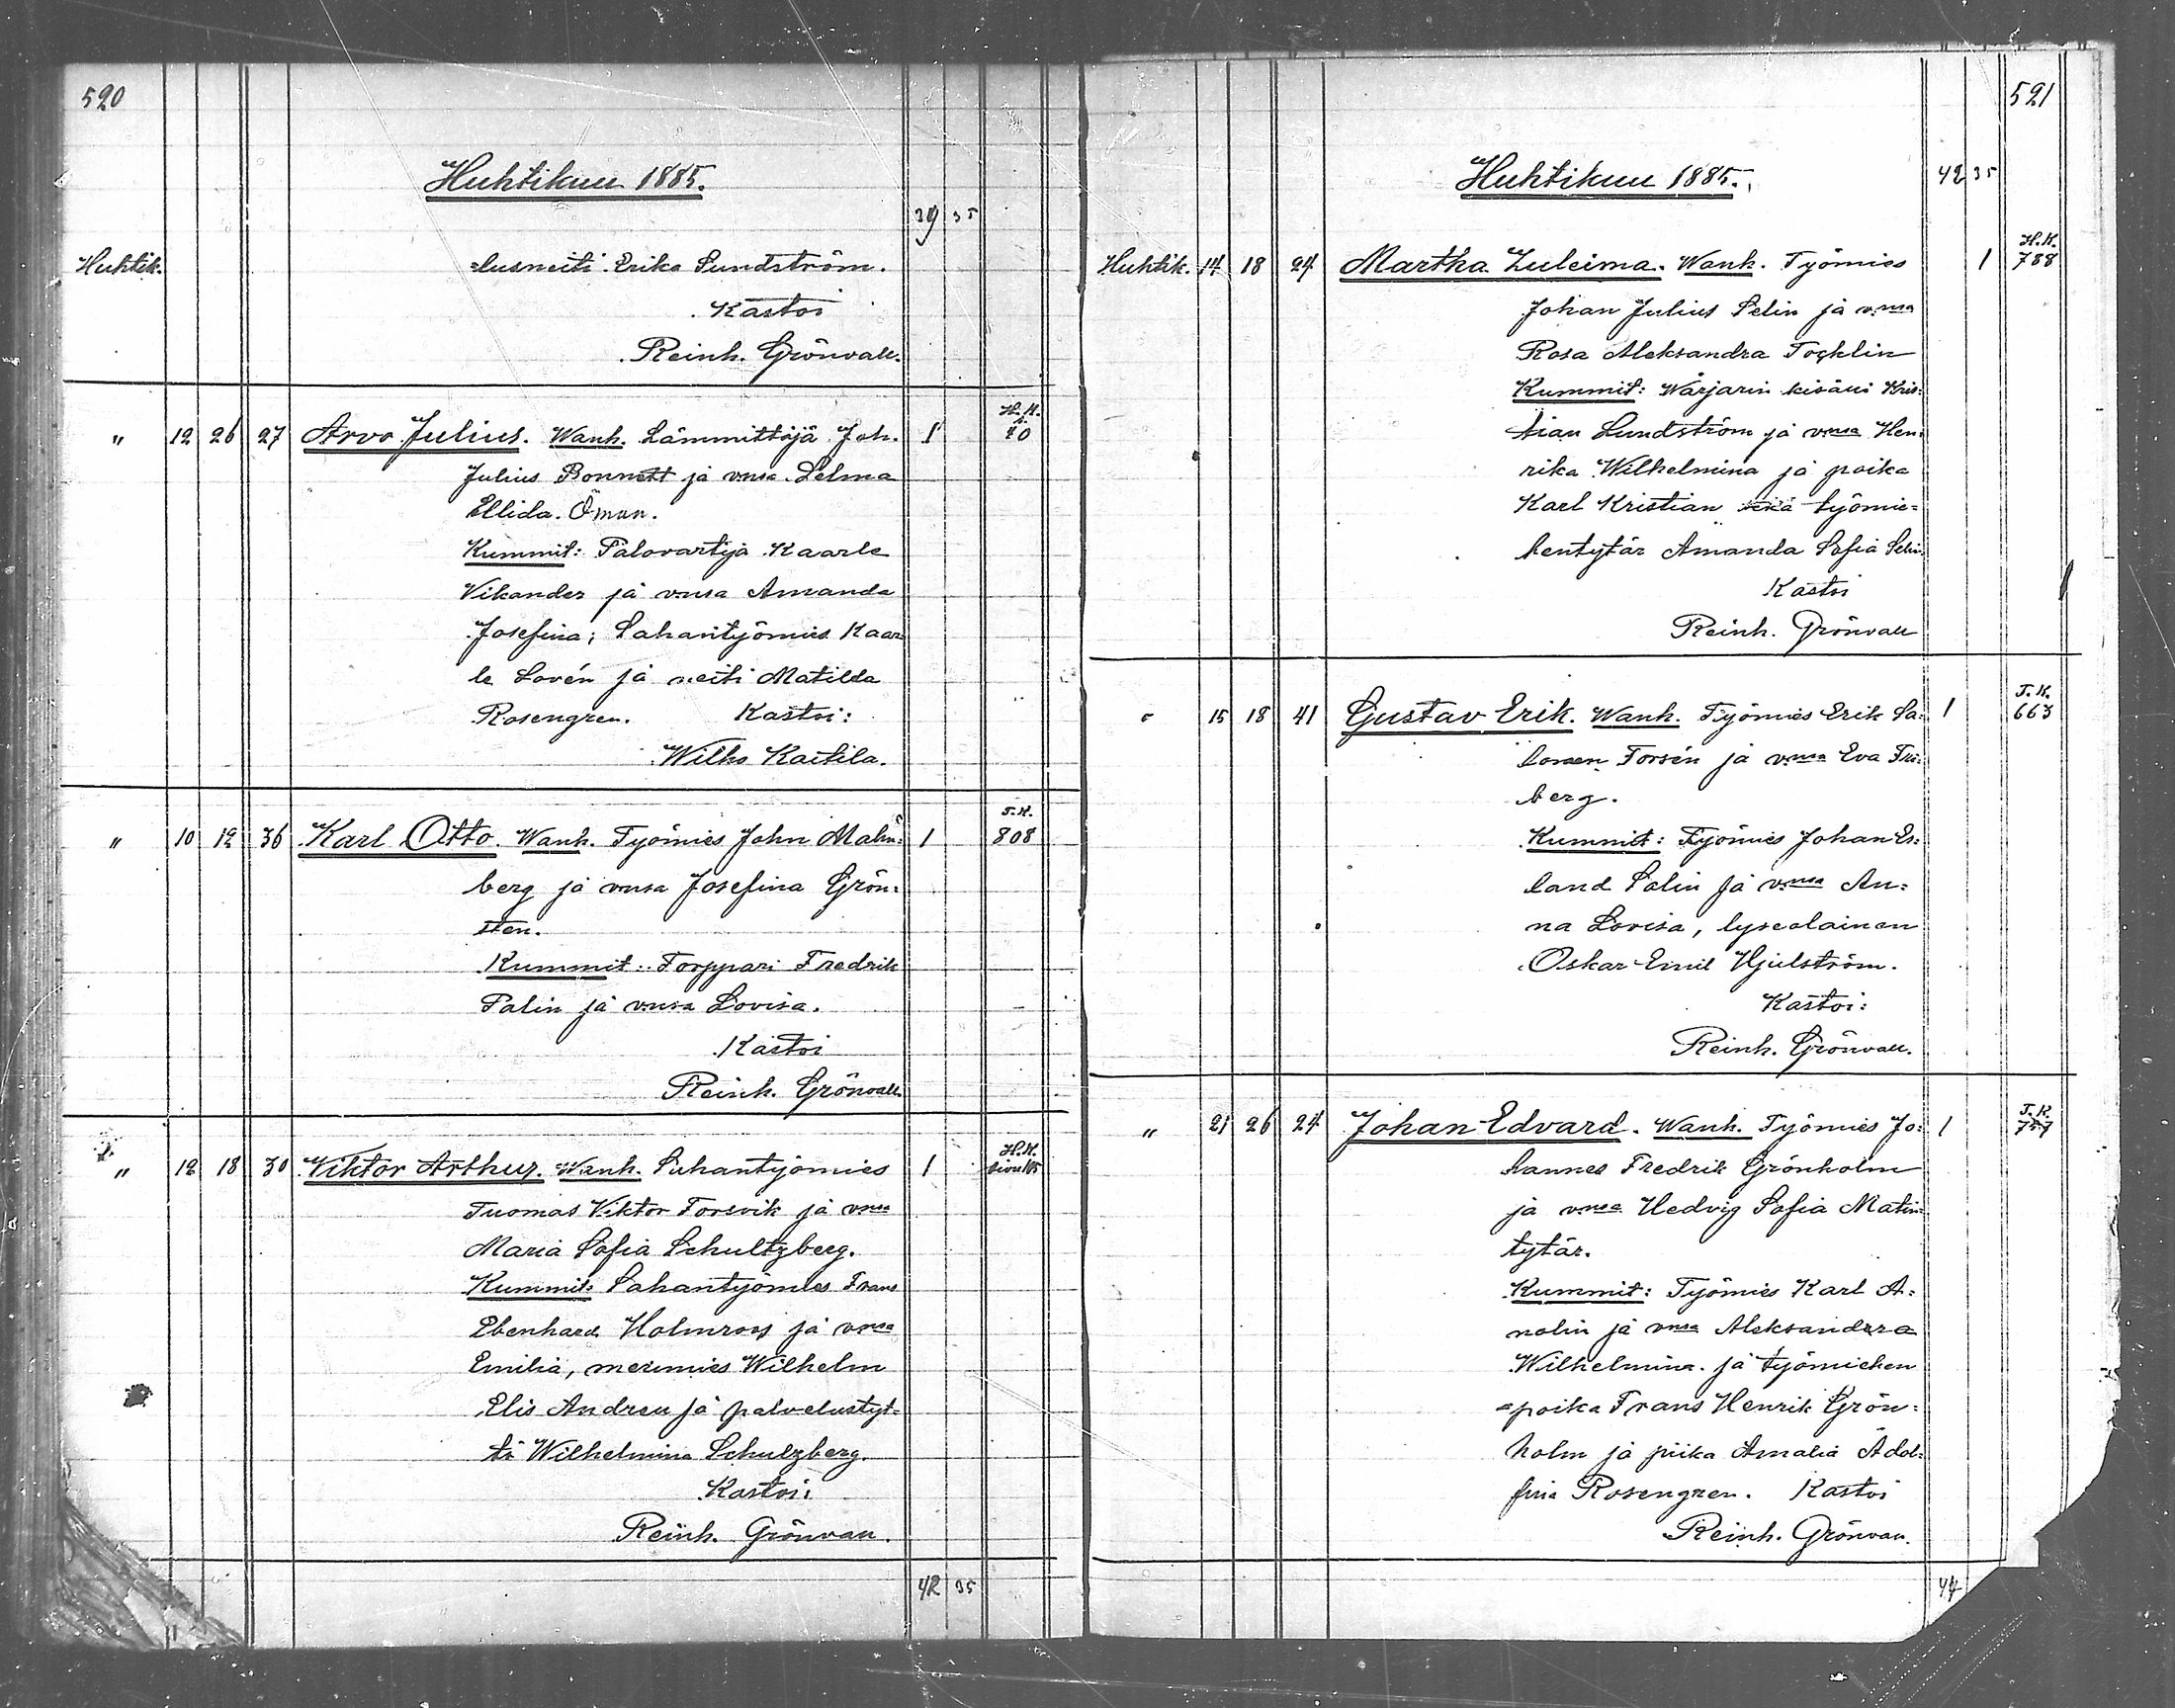 520
Huhtikuu 1885.
39 35
Huhtik. =lusneiti Erika Sundström.
Kastoi
Reinh. Grönvall.
" 12 26 27 Arvo Julius. Wanh. Lämmittäjä Joh. 1 H.K. 70
Julius Bonnett ja vmsa Selma
Ellida Öman.
Kummit: Palovartija Kaarle
Vikander ja vmsa Amanda
Josefina; Sahantyömies Kaar
le Lovén ja neiti Matilda
Rosengren. Kastoi:
Wilho Kaitila.
" 10 12 36 Karl Otto. Wanh. Työmies John Malm= 1 T.K. 808
berg ja vmsa Josefina Grön=
sten.
Kummit: Torppari Fredrik
Palin ja vmsa Lovisa.
Kastoi
Reinh. Grönvall.
" 12 18 30 Viktor Arthur. Wanh. Sahantyömies 1 H.K.
Tuomas Viktor Forsvik ja vmsa
Maria Sofia Schultzberg.
Kummit: Sahantyömies Frans
Ebenhard Holmroos ja vmsa
Emilia, merimies Wilhelm
Elis Andreu ja palvelustyt=
tö Wilhelmina Schulzberg.
Kastoi:
Reinh. Grönvall.
42 35
521
Huhtikuu 1885. 42 35
Huhtik. 14 18 24 Martha Zuleima. Wanh. Työmies 1 H.K. 788
Johan Julius Selin ja vmsa
Rosa Aleksandra Tocklin
Kummit: Wärjärin kisälli Kris=
tian Lundström ja vmsa Hen=
rika Wilhelmina ja poika
Karl Kristian sekä työmie=
hentytär Amanda Sofia Selin.
Kastoi
Reinh. Grönvall
" 15 18 41 Gustav Erik. Wanh. Työmies Erik Sa= 1 T.K. 663
lomon Forsén ja vmsa Eva Fri=
berg.
Kummit: Työmies Johan Er=
land Salin ja vmsa An=
na Lovisa, lyseolainen
Oskar Emil Hjulström.
Kastoi:
Reinh. Grönvall.
" 21 26 24 Johan Edvard. Wanh. Työmies Jo= 1 T.K. 757
hannes Fredrik Grönholm
ja vmsa Hedvig Sofia Matin
tytär.
Kummit: Työmies Karl A=
nolin ja vmsa Aleksandra
Wilhelmina ja työmiehen
=poika Frans Henrik Grön=
holm ja piika Amalia Adol=
fina Rosengren. Kastoi
Reinh. Grönvall.
44